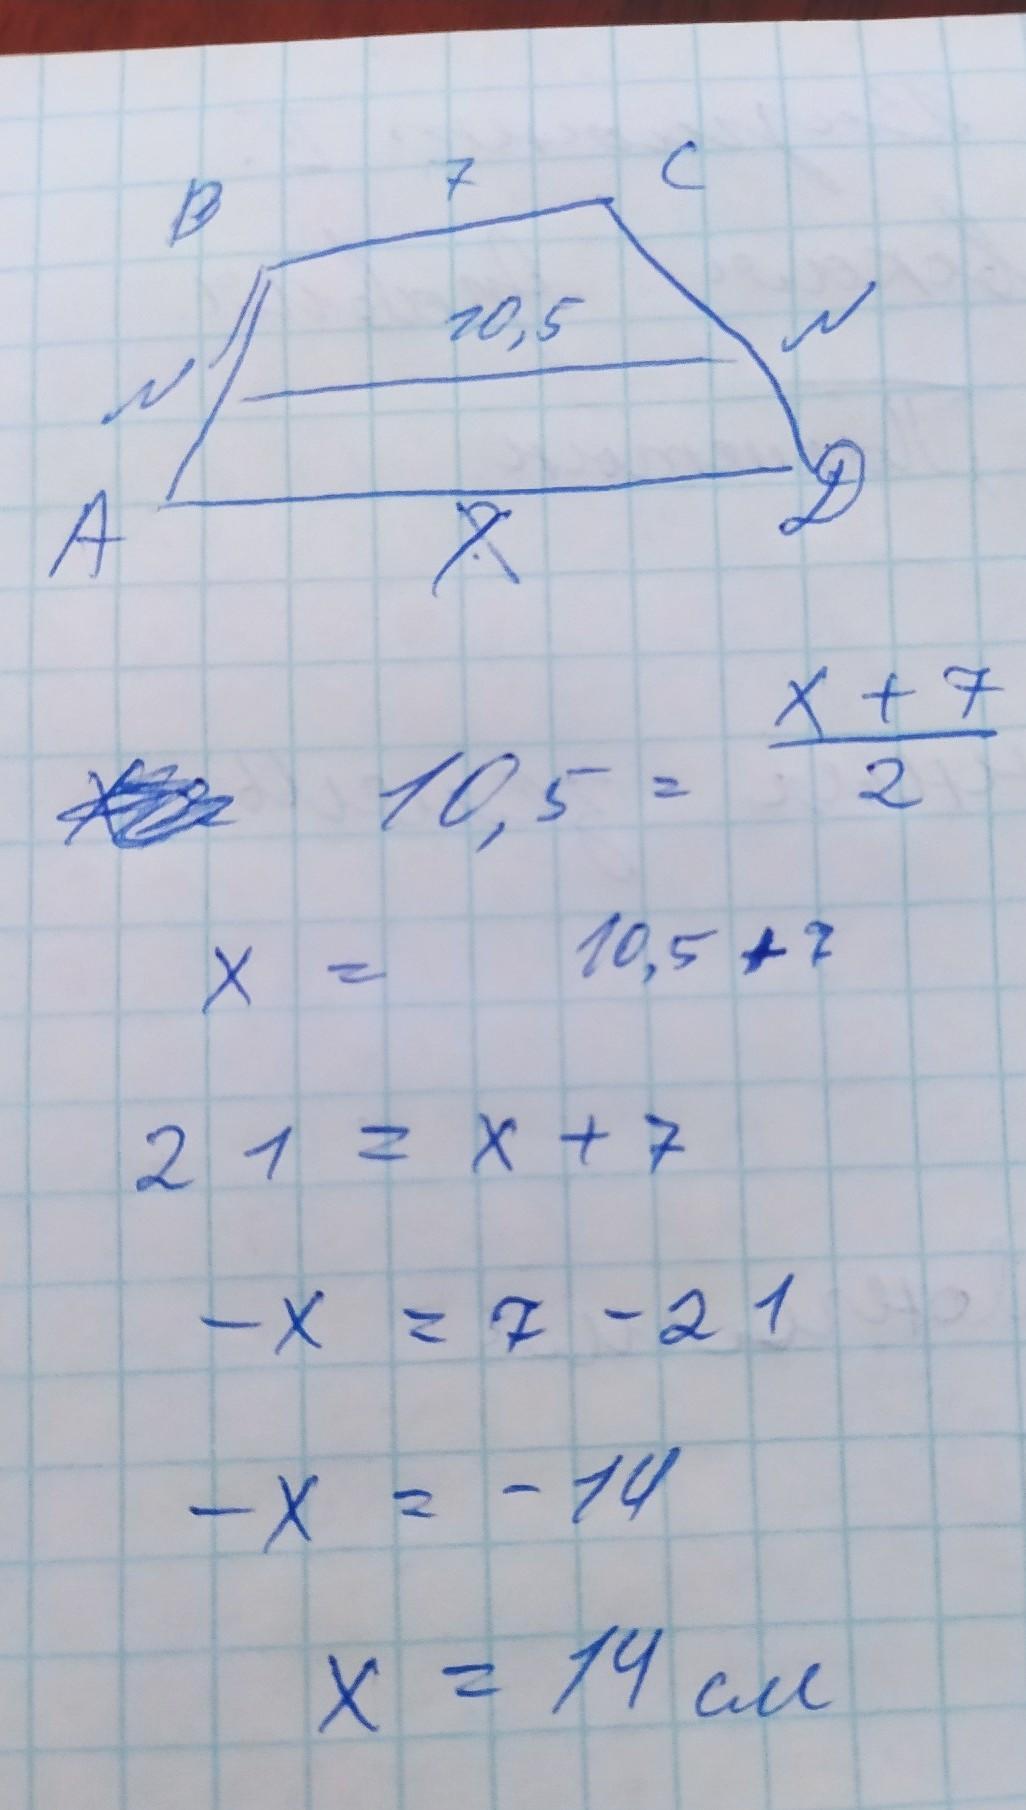 B 7 C
10,5
N N
A X D
10,5 = (x + 7)/2
x = 10,5 + 7
21 = x + 7
-x = 7 - 21
-x = -14
x = 14 см